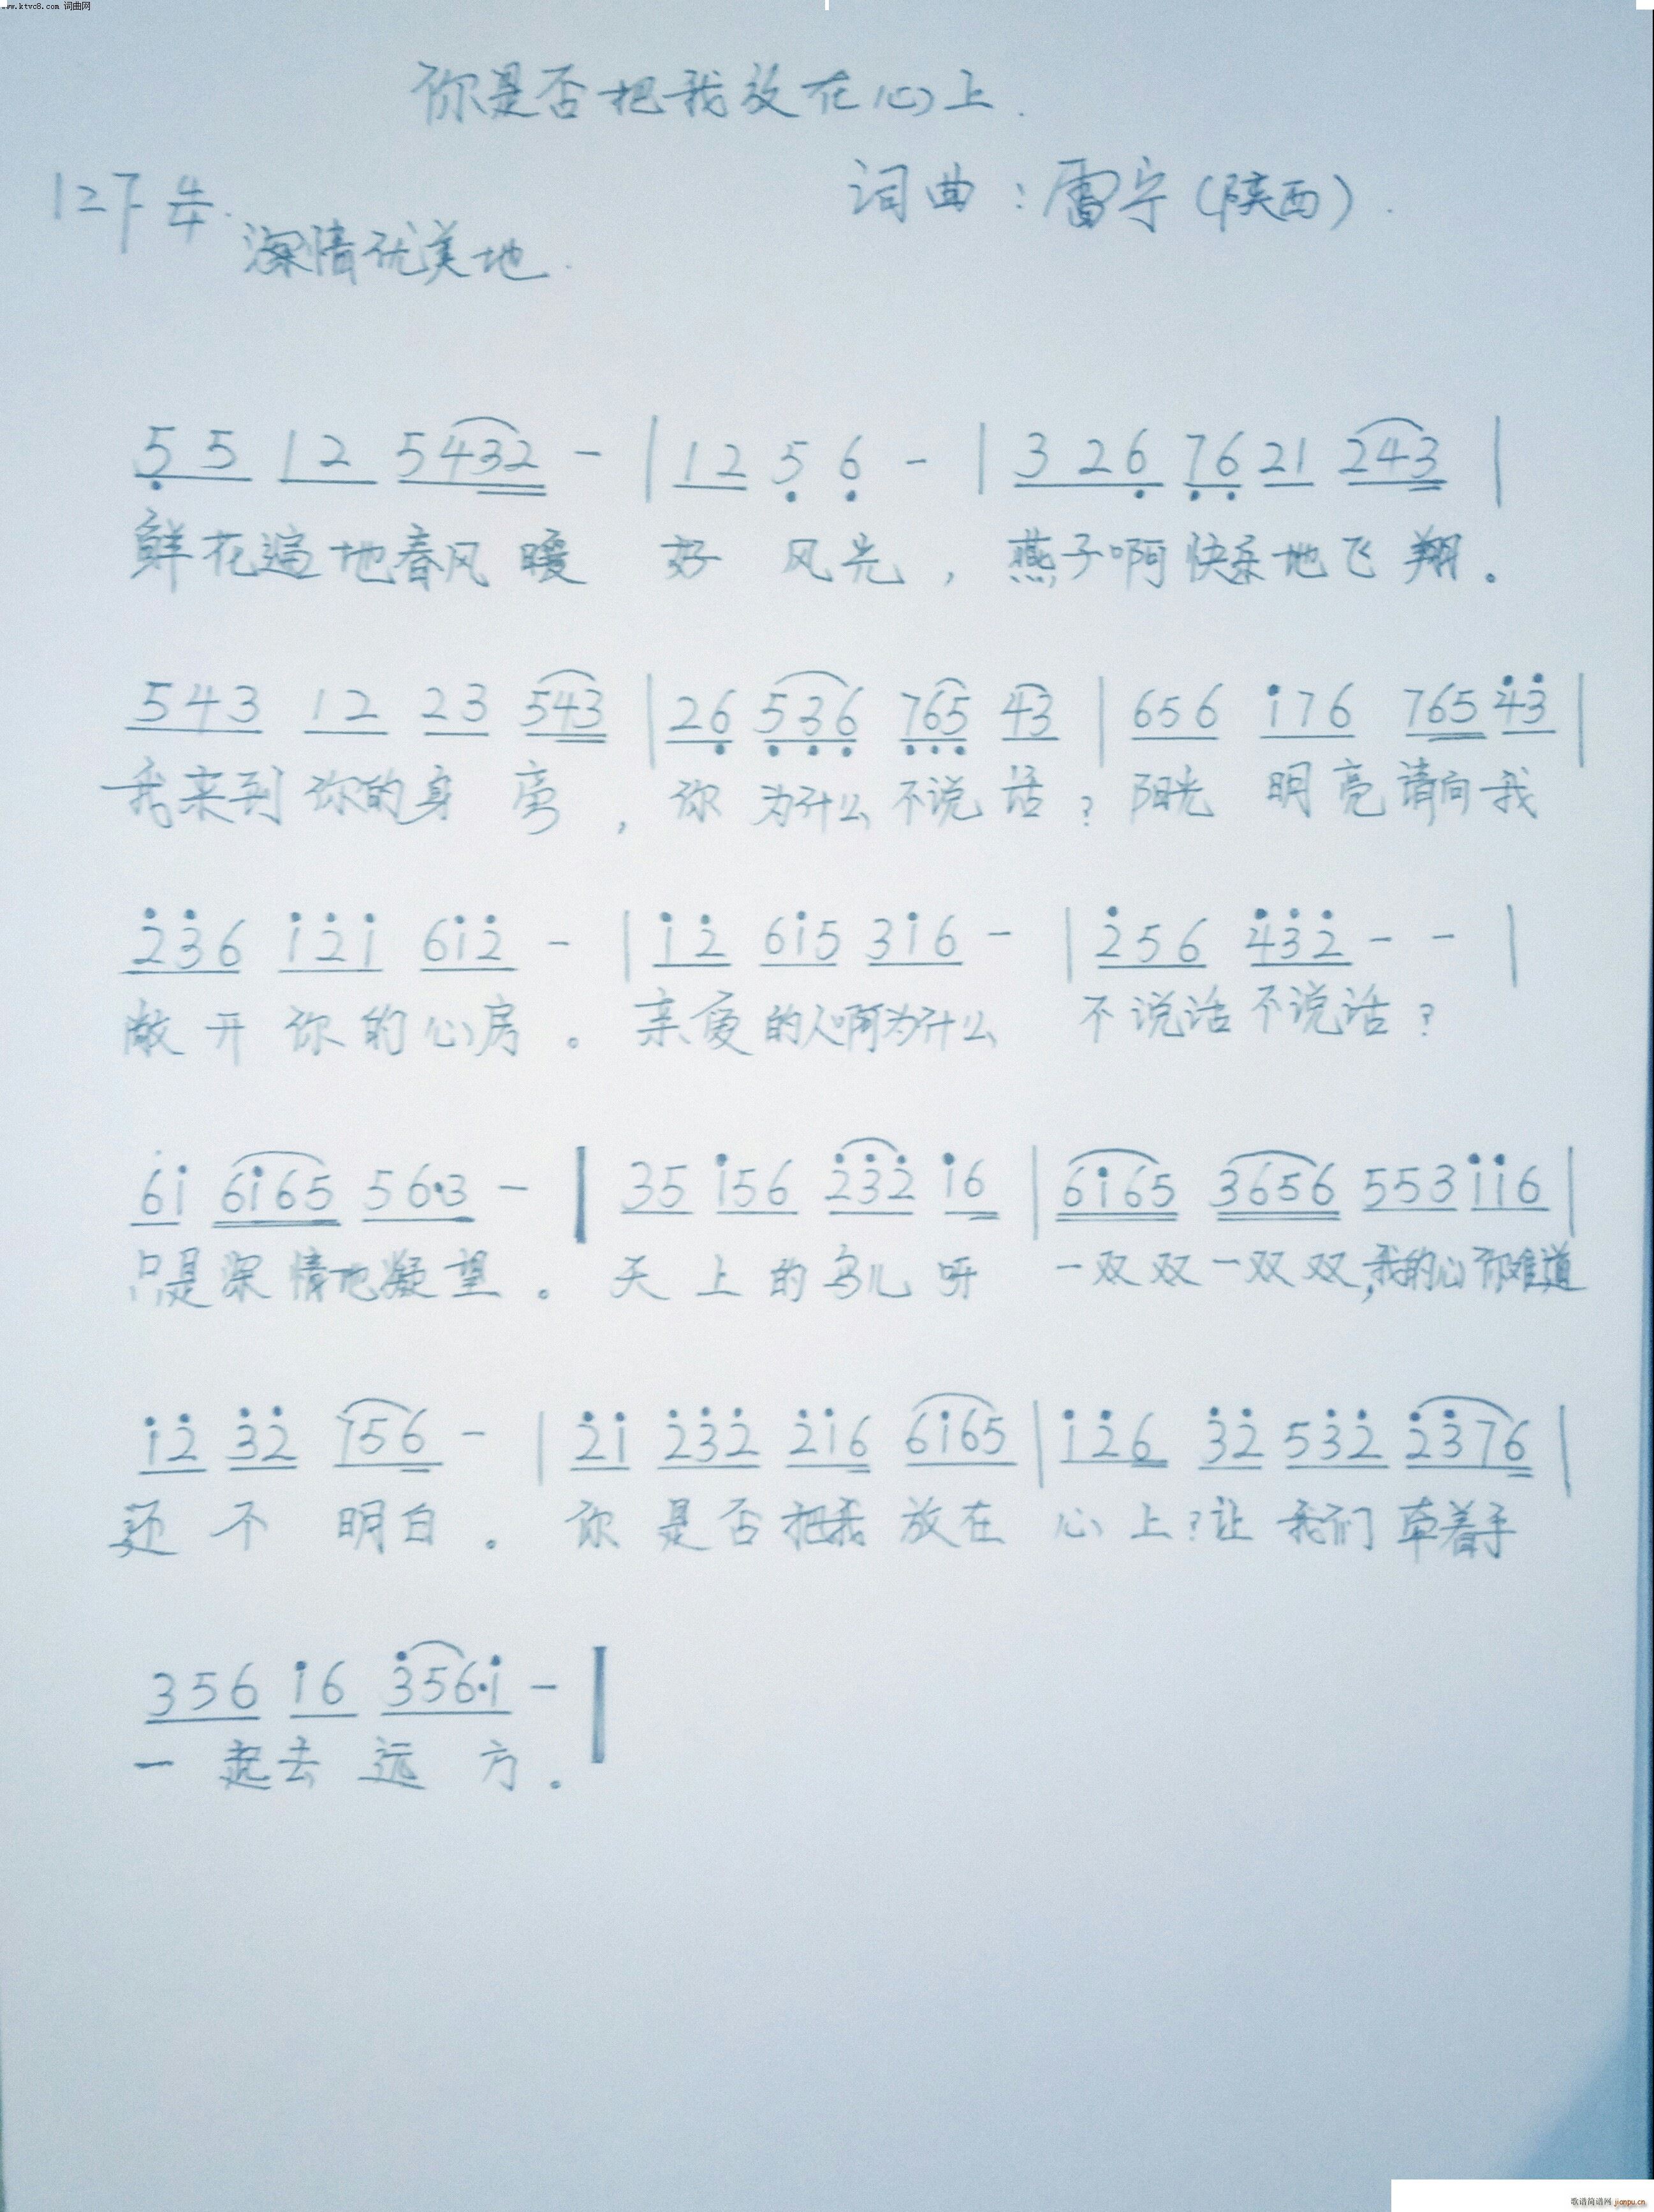 www.ktvc8.com 词曲网
你是否把我放在心上.
词曲:雷宁(陕西).
1=F 4/4.
深情优美地.
5 5 1 2 5432 - | 12 5 6 - | 3 26 76 21 243 |
鲜花遍地春风暖 好 风光,燕子啊快乐地飞翔。
543 12 23 543 | 26 536 765 43 | 656 i76 765 43 |
我来到你的身旁,你为什么不说话?阳光明亮请向我
236 i2i 6i2 - | i2 6i5 3i6 - | 256 432 - - |
敞开你的心房。亲爱的人啊为什么 不说话不说话?
6i 6i65 56·3 - | 35 i56 232 i6 | 6i65 3656 553 ii6 |
只是深情地凝望。天上的鸟儿呀 一双双一双双,我的心你难道
i2 32 756 - | 2i 232 2i6 6i65 | i26 32 532 2376 |
还不明白。你是否把我放在心上?让我们牵着手
356 i6 356·i - |
一起去远方。
歌谱简谱网 jianpu.cn